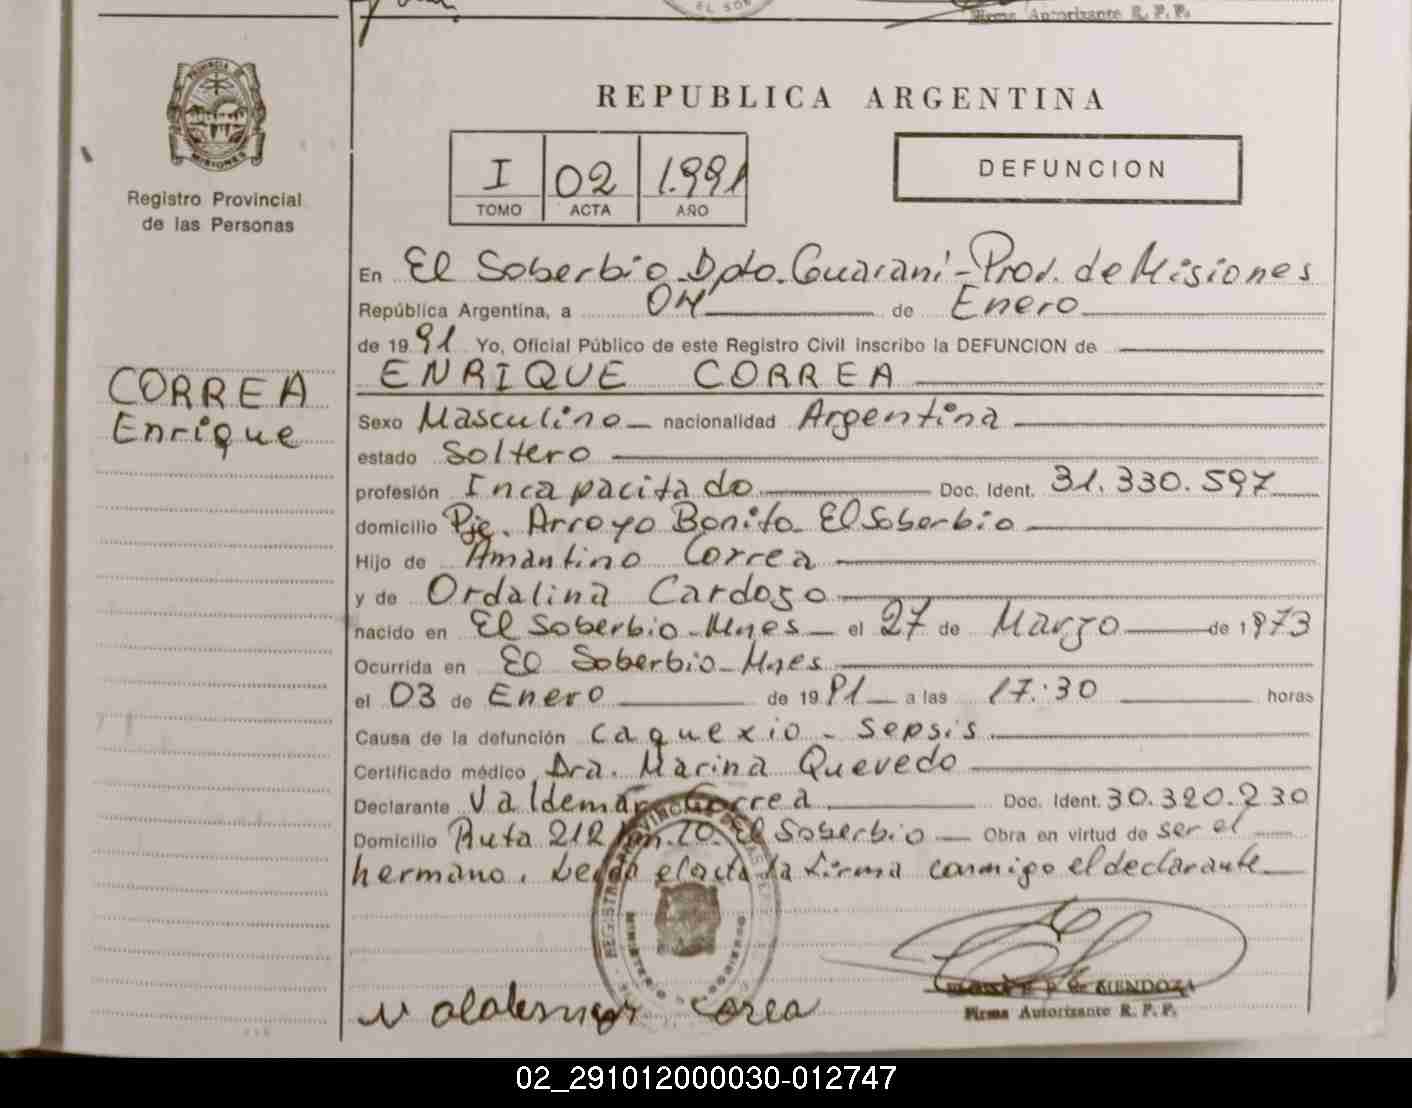 EL SOB
Firma Autorizante R. P. P.
PROVINCIA DE
MISIONES
Registro Provincial
de las Personas
REPUBLICA ARGENTINA
I 02 1.991
TOMO ACTA AÑO
DEFUNCION
En El Soberbio Dpto. Guaraní - Prov. de Misiones
República Argentina, a 04 de Enero
de 1991 Yo, Oficial Público de este Registro Civil Inscribo la DEFUNCION de
ENRIQUE CORREA
CORREA
Enrique
Sexo Masculino nacionalidad Argentina
estado Soltero
profesión Incapacitado Doc. Ident. 31.330.597
domicilio Pje. Arroyo Bonito El Soberbio
Hijo de Amantino Correa
y de Ordalina Cardozo
nacido en El Soberbio - Mnes el 27 de Marzo de 1973
Ocurrida en El Soberbio - Mnes
el 03 de Enero de 1991 a las 17:30 horas
Causa de la defunción caquexio - sepsis
Certificado médico Dra. Marina Quevedo
Declarante Valdemar Correa Doc. Ident. 30.320.230
Domicilio Ruta 212 km. 10. El Soberbio Obra en virtud de ser el
hermano. Leida el acta la firma conmigo el declarante
REGISTRO PROVINCIAL DE LAS PER
MINISTERIO GOBIERNO
Valdemar Corea
MENDOZA
Firma Autorizante R. P. P.
02_291012000030-012747